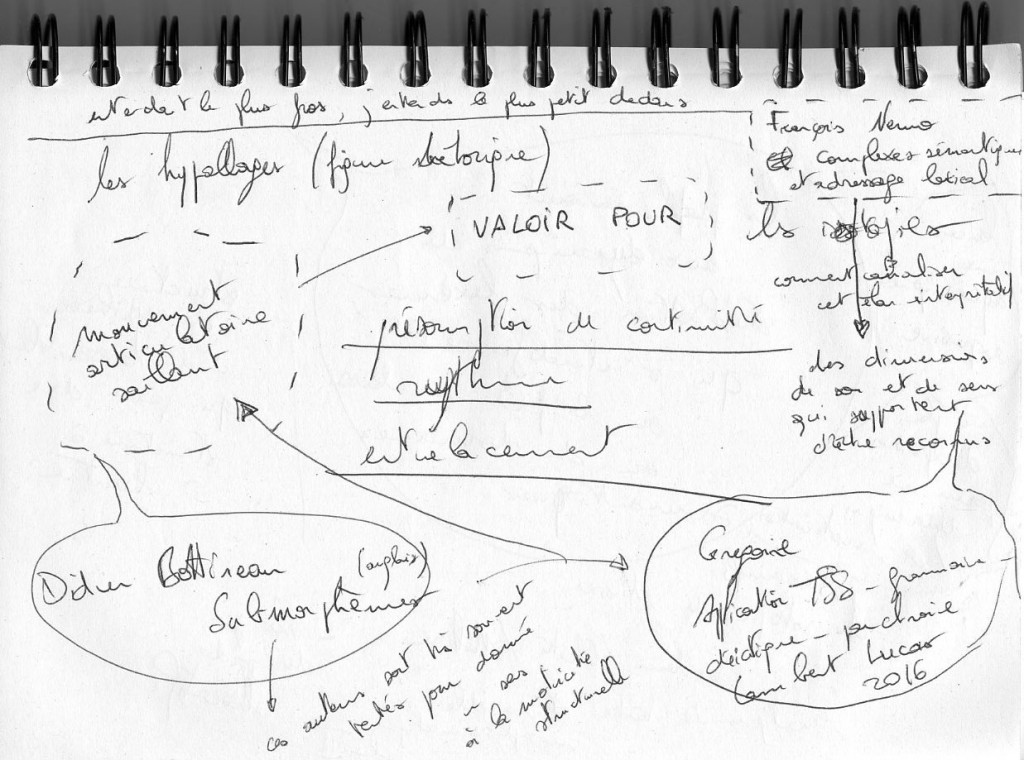 entendant le plus gros, j'entends le plus petit dedans
les hypallages (figure rhétorique)
François Nemo
complexes sémantiques
et adressage lexical
VALOIR POUR
les
comment canaliser
cet élan interprétatif
des dimensions
de son et de sens
qui supportent
d'être reconnus
mouvement
articulatoire
saillant
présomption de continuité
rythme
entrelacement
Didier Bottineau
(anglais)
Submorphèmes
ces auteurs sont très souvent
tentés pour donné
sens
à la motricité
structurelle
Grégoire
Application TSS - grammaire
déictique - pour chaire
Lambert Lucas
2016